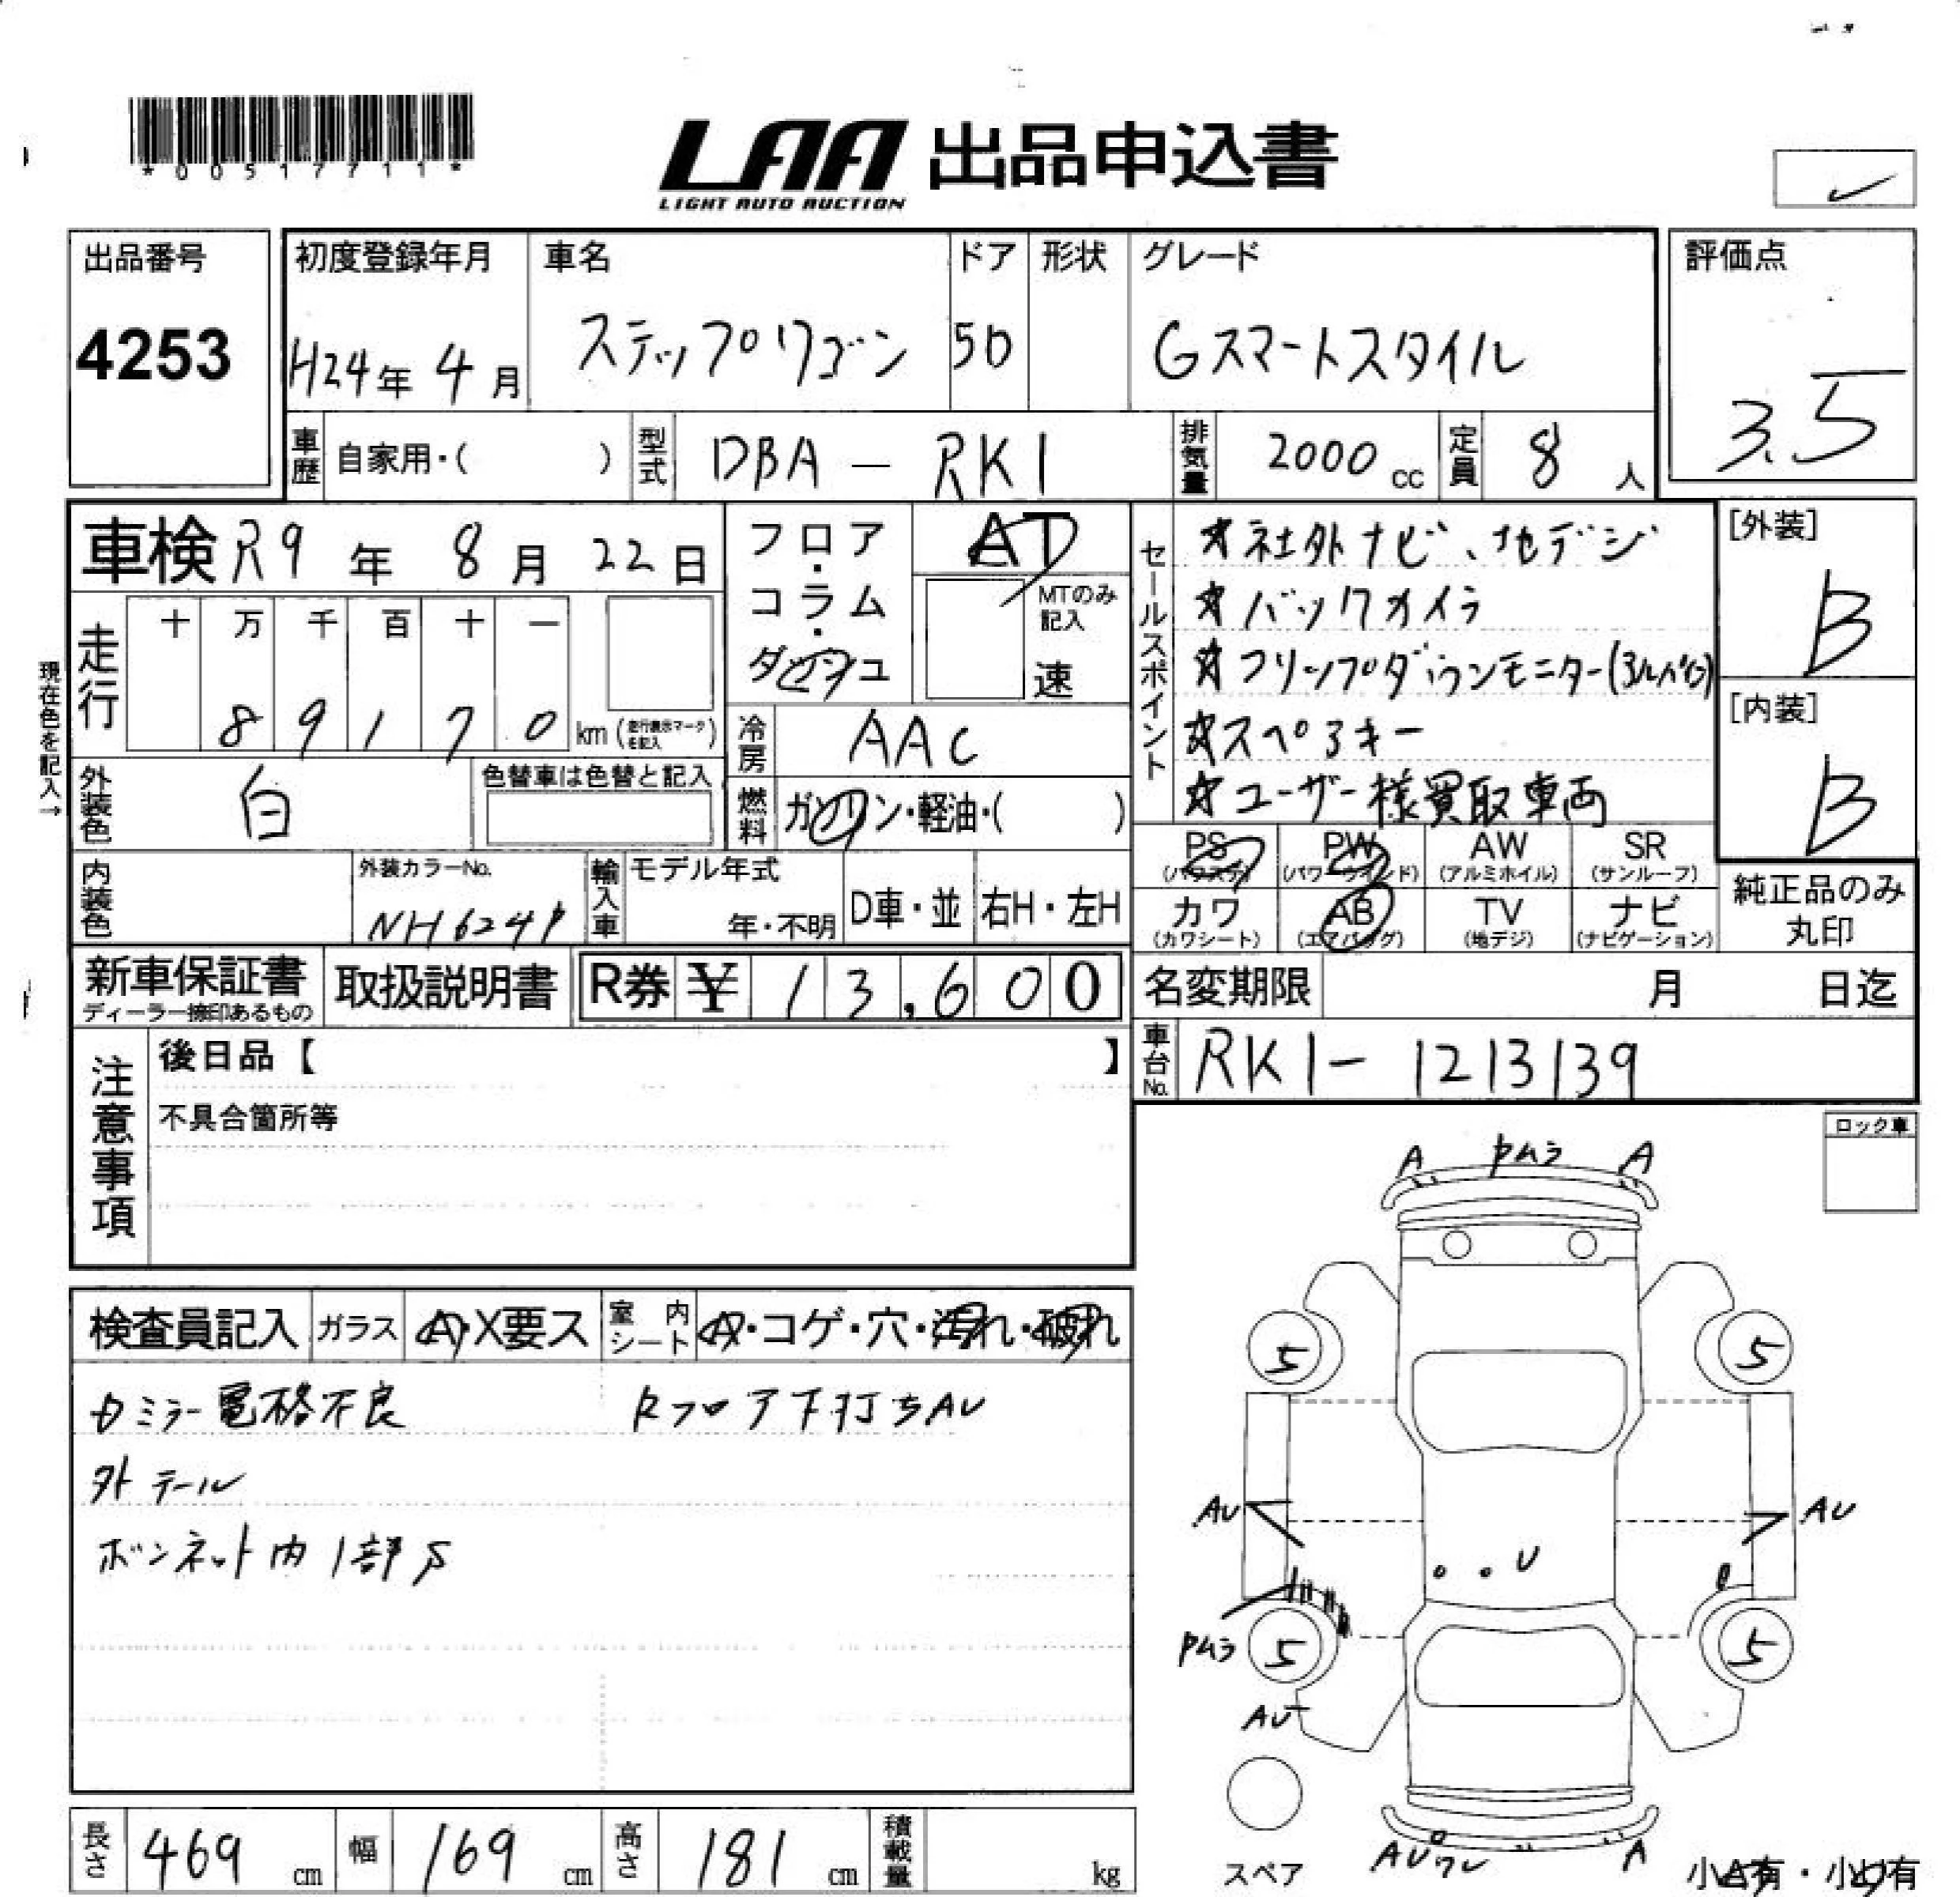 *00517711*
LAA 出品申込書
LIGHT AUTO AUCTION
出品番号
4253
初度登録年月
H24年 4月
車名
ステップワゴン
ドア
5D
形状
グレード
Gスマートスタイル
評価点
3.5
車歴 自家用・( )
型式 DBA — RK1
排気量 2000 cc
定員 8 人
車検 R9年 8月 22日
フロア・コラム・ダッシュ
AT
MTのみ記入
速
走行
十 万 千 百 十 一
8 9 1 7 0 km
現在色を記入→
冷房 AAC
外装色 白
色替車は色替と記入
燃料 ガソリン・軽油・( )
セールスポイント
★社外ナビ、地デジ
★バックカメラ
★フリップダウンモニター
★スペアキー
★ユーザー様買取車両
[外装]
B
[内装]
B
PS PW AW SR
(パワステ) (パワーウインド) (アルミホイル) (サンルーフ)
カワ AB TV ナビ
(カワシート) (エアバッグ) (地デジ) (ナビゲーション)
純正品のみ
丸印
内装色
外装カラーNo.
NH624P
輸入車
モデル年式
年・不明
D車・並
右H・左H
新車保証書
取扱説明書
R券 ¥ 13,600
名変期限 月 日迄
車台No. RK1-1213139
注意事項
後日品【 】
不具合箇所等
ロック車
検査員記入
ガラス A・X要ス
室内シート A・コゲ・穴・汚れ・破れ
ミラー電格不良
Rフロア下打ちAU
外テール
ボンネット内1部S
A Pムラ A
5 5
AU AU
U
Pムラ 5 5
AU
スペア
AUワレ A
小A有・小U有
長さ 469 cm
幅 169 cm
高さ 181 cm
積載量 kg